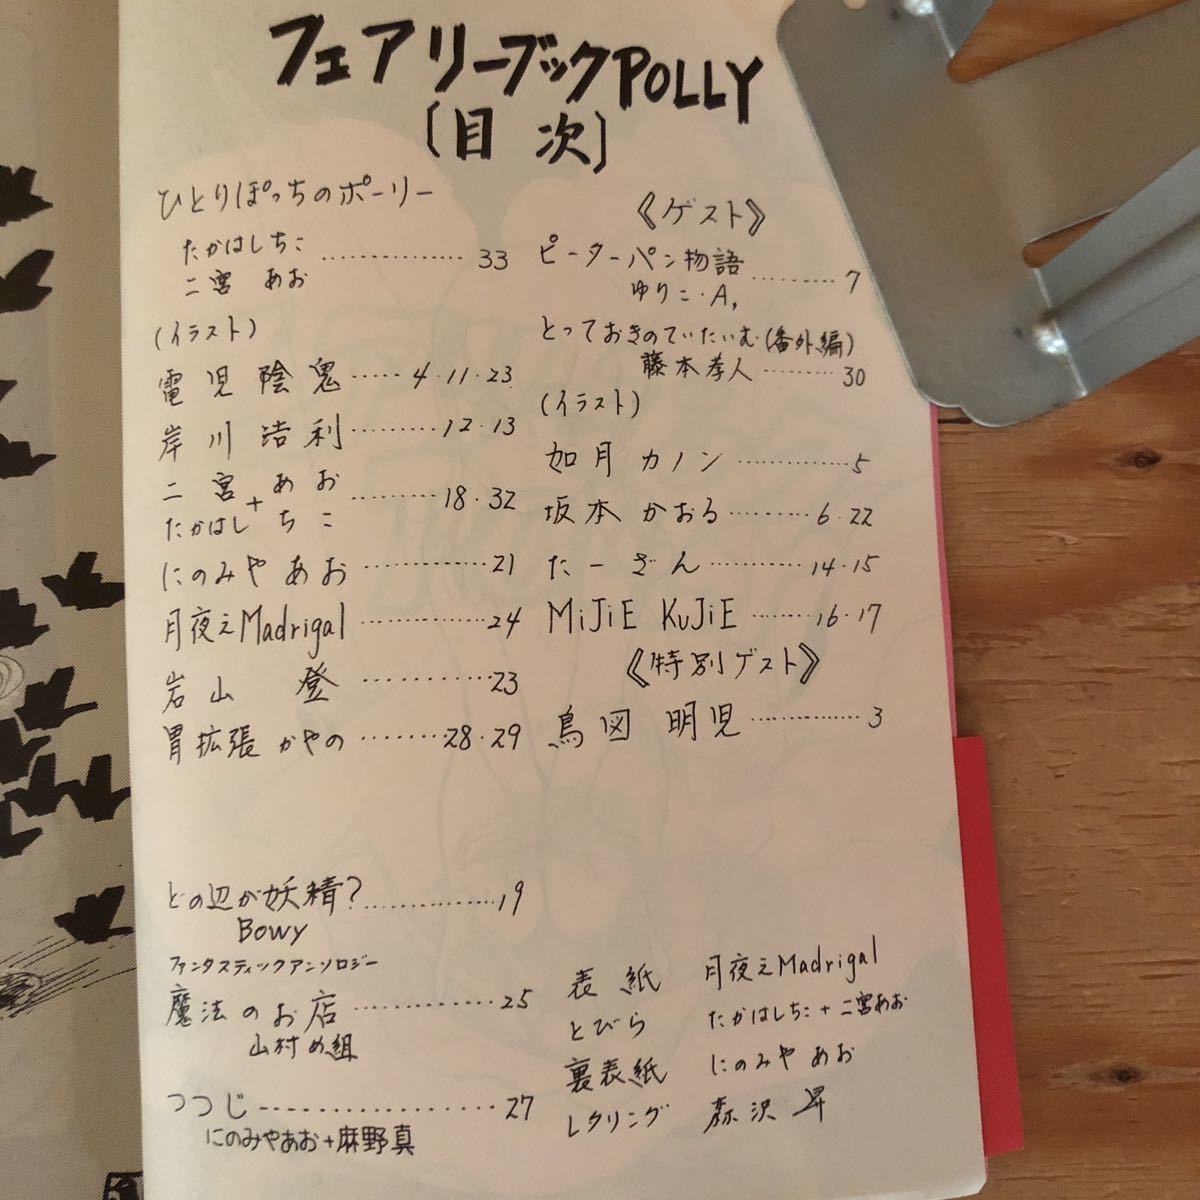 フェアリーブックPOLLY
〔目次〕
ひとりぽっちのポーリー
たかはしちこ
二宮 あお ……………33
(イラスト)
電児陰鬼……4・11・23
岸川浩利………12・13
二宮あお
+
たかはしちこ
………18・32
にのみやあお…………21
月夜之Madrigal……………24
岩山 登…………23
胃拡張かやの………28・29
どの辺が妖精?……………19
Bowy
ファンタスティックアンソロジー
魔法のお店……………25
山村め組
つつじ………………27
にのみやあお+麻野真
《ゲスト》
ピーターパン物語………7
ゆりこ・A,
とっておきのていたいむ(番外編)
藤本孝人………30
(イラスト)
如月カノン…………5
坂本かおる………6・22
たーざん…………14・15
MiJiE KuJiE………16・17
《特別ゲスト》
鳥図明児……………3
表紙 月夜之Madrigal
とびら たかはしちこ+二宮あお
裏表紙 にのみやあお
レタリング 森沢昇